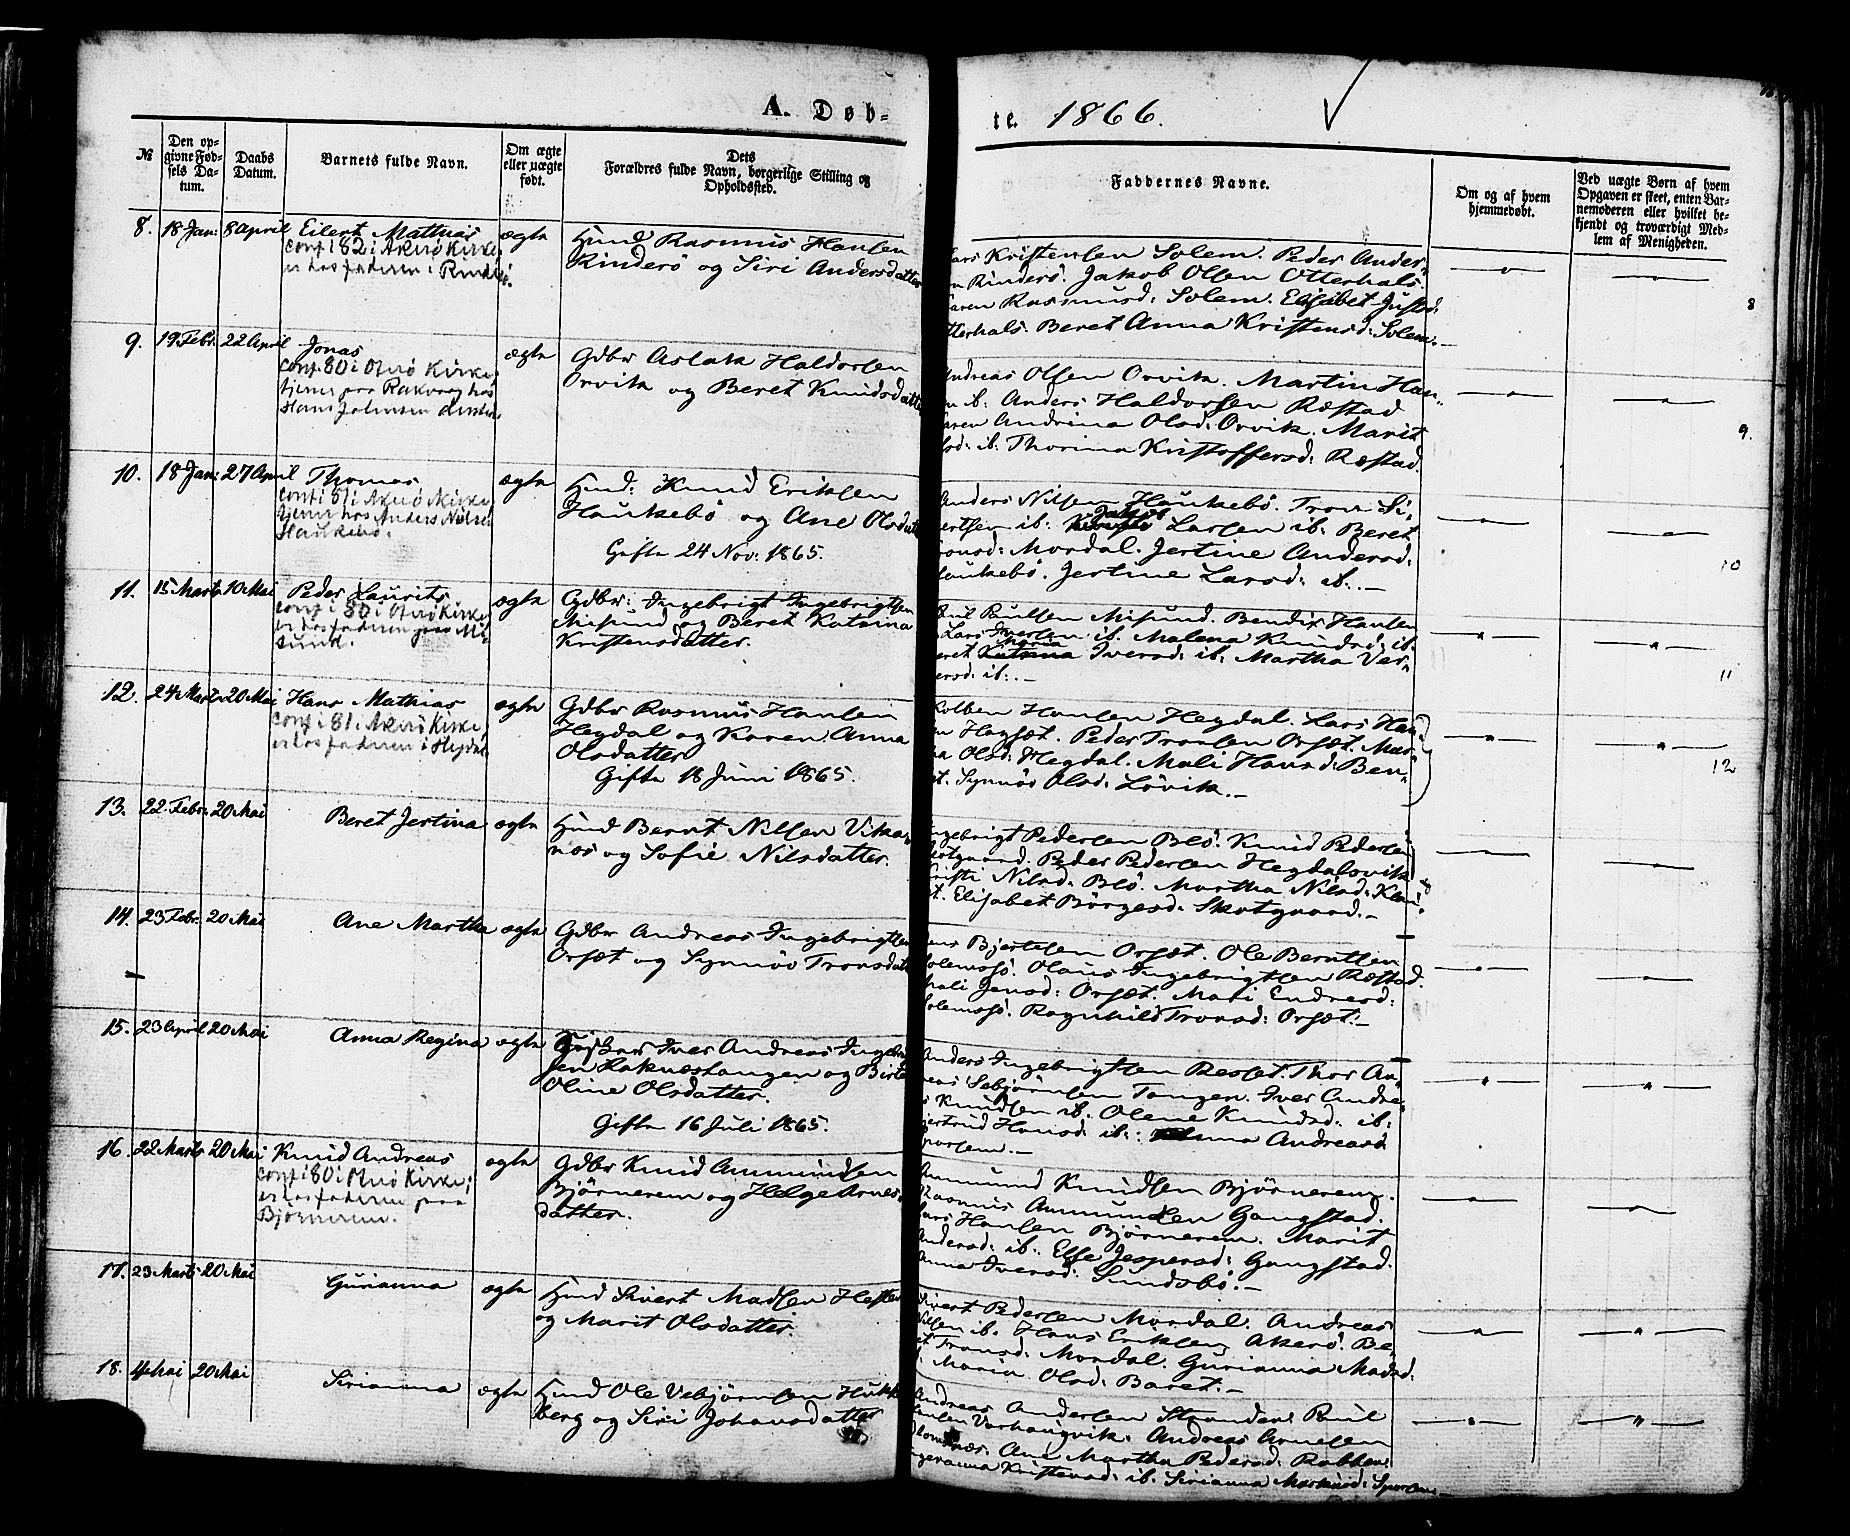 A. Døb-
te. 1866.
№
Den op-
givne Fød-
sels Da-
tum.
Daabs
Datum.
Barnets fulde Navn.
Om ægte
eller uægte
født.
Dets
Forældres fulde Navn, borgerlige Stilling og
Opholdssted.
Faddernes Navne.
Om og af hvem
hjemmedøbt.
Ved uægte Børn af hvem
Opgaven er skeet, enten Bar-
nemoderen eller hvilket be-
kjendt og troværdigt Med-
lem af Menigheden.
8. 18 Jan: 8 April Eilert Mathias ægte
conf i 82 i Akerø Kirke,
er hos faderen i Rinderö.
Huusd Rasmus Hansen
Rinderö og Siri Andersdatter
Kristensen Solem. Peder Ander-
Rinderö. Jakob Olsen Otterhals.
Rasmusd: Solem. Elisabet Justsd:
Beret Anna Kristensd: Solem.-
8
9. 19 Febr: 22 April Jonas ægte
conf. 80 i Otterö Kirke,
tjener paa Rakvaag hos
Hans Johnsen
Gdbr Aslak Haldorsen
Orvik og Beret Knudsdatter
Andreas Olsen Orvik. Martin Han-
ib: Anders Haldorsen Ræstad
Andrina Olsd: Orvik. Marit
ib: Thorina Kristoffersd: Ræstad.
9.
10. 18 Jan: 27 April Thomas ægte
conf i 81 i Akerö Kirke,
tjener hos Anders Nilsen
Haukebö.
Huusd: Knud Eriksen
Haukebö og Ane Olsdatter
Gifte 24 Nov: 1865.
Anders Nilsen Haukebö. Tron Si-
vertsen ib: Jakob Larsen ib: Beret
Tronsd: Mordal. Jertine Andersd:
Haukebö. Jertine Larsd: ib:.-
10
11. 15 Marts 10 Mai Peder Laurits ægte
conf i 80 i Otterö Kirke,
er hos faderen paa Mi-
sund.
Gdbr: Ingebrigt Ingebrigtsen
Misund og Beret Katrina
Kristensdatter.
Misund. Bendix Hansen
Lars Iversen ib. Malena Knudsd: ib.
Beret Maria Iversd: ib: Martha Iver-
sd: ib:.-
11
12. 24 Marts 20 Mai Hans Mathias ægte
conf i 81 i Akerö Kirke,
er hos faderen i Hegdal
Gdbr Rasmus Hansen
Hegdal og Karen Anna
Olsdatter
Gifte 18 Juni 1865.
Kolben Hansen Hegdal. Lars Han-
Hegset. Peder Tronsen Orset. Mar-
Olsd: Hegdal. Mali Hansd: Ben-
Synnöv Olsd: Lövik.-
12
13. 22 Febr. 20 Mai Beret Jertina ægte
Huusd Bernt Nilsen Vika-
næs og Sofie Nilsdatter.
Ingebrigt Pedersen Blö. Knud Pedersen
Skotgaard. Peder Pedersen Hegdalsvik
Kristi Nilsd: Blö. Martha Nilsd:
Elisabet Börgesd: Skotgaard.-
14. 23 Febr. 20 Mai Ane Martha ægte
Gdbr Andreas Ingebrigtsen
Orset og Synnöv Tronsdatter
Jens Bjertesen Orset. Ole Berntsen
Solemssö. Olaus Ingebrigtsen Ræstad.
Mali Jensd: Orset. Mari Endresd:
Solemssö. Ragnhild Tronsd: Orset.-
15. 23 April 20 Mai Anna Regina ægte
Fisker Iver Andreas Ingebrigt-
sen Laknestangen og Birte
Oline Olsdatter.
Gifte 16 Juli 1865.
Anders Ingebrigtsen Ræstel. Thor An-
dreas Sebjörnsen Tangen. Iver Andre-
as Knudsen ib. Olene Knudsd: ib:
Gjertrud Hansd: ib: Anna Andreasd:
Sporsem.-
16. 22 Marts 20 Mai Knud Andreas ægte
conf i 80 i Otterö Kirke;
er hos faderen paa
Björnerem.
Gdbr Knud Ammundsen
Björnerem og Helge Arnes-
datter.
Ammund Knudsen Björnerem.
Rasmus Ammundsen Gangstad.
Lars Hansen Björnerem. Marit
Andersd: ib:. Else Jespersd: Gangstad.
Anna Iversd: Sundsbö.-
17. 23 Marts 20 Mai Gurianna ægte
Huusd Sivert Madsen Hestad
og Marit Olsdatter.
Sivert Pedersen Mordal. Andreas
Nilsen ib. Hans Eriksen Akerö. Be-
ret Tronsd: Mordal. Gurianna Madsd:
Maria Olsd: Baret.-
18. 4 Mai 20 Mai Sirianna ægte
Huusd Ole Vebjörnsen Hukk-
berg og Siri Johansdatter
Andreas Andersen Stranden. Poul
Hansen Varhaugvik. Andreas Arnesen
Ane Martha Pedersd: Rabben.
Ingeranna Kristensd: ib. Sirianna Markusd: